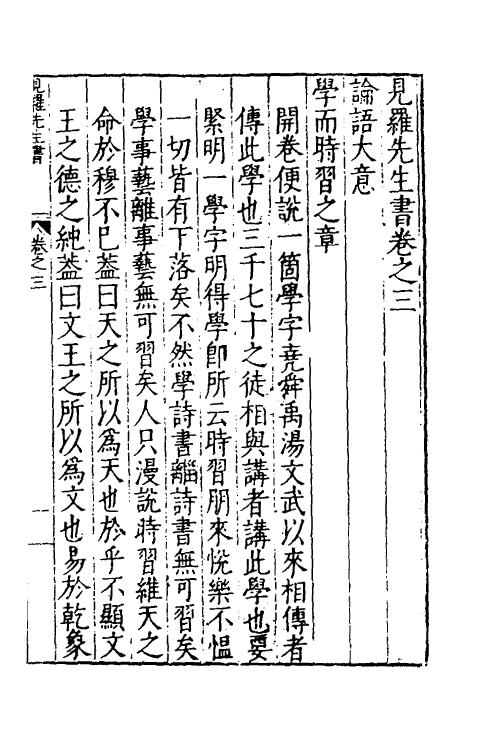 見羅先生書卷之三
論語大意
學而時習之章
開卷便說一箇學字堯舜禹湯文武以來相傳者
傳此學也三千七十之徒相與講者講此學也要
緊明一學字明得學卽所云時習朋來悅樂不慍
一切皆有下落矣不然學詩書離詩書無可習矣
學事藝離事藝無可習矣人只漫說時習維天之
命於穆不已葢曰天之所以爲天也於乎不顯文
王之德之純葢曰文王之所以爲文也易於乾象
見羅先生書 卷之三 一